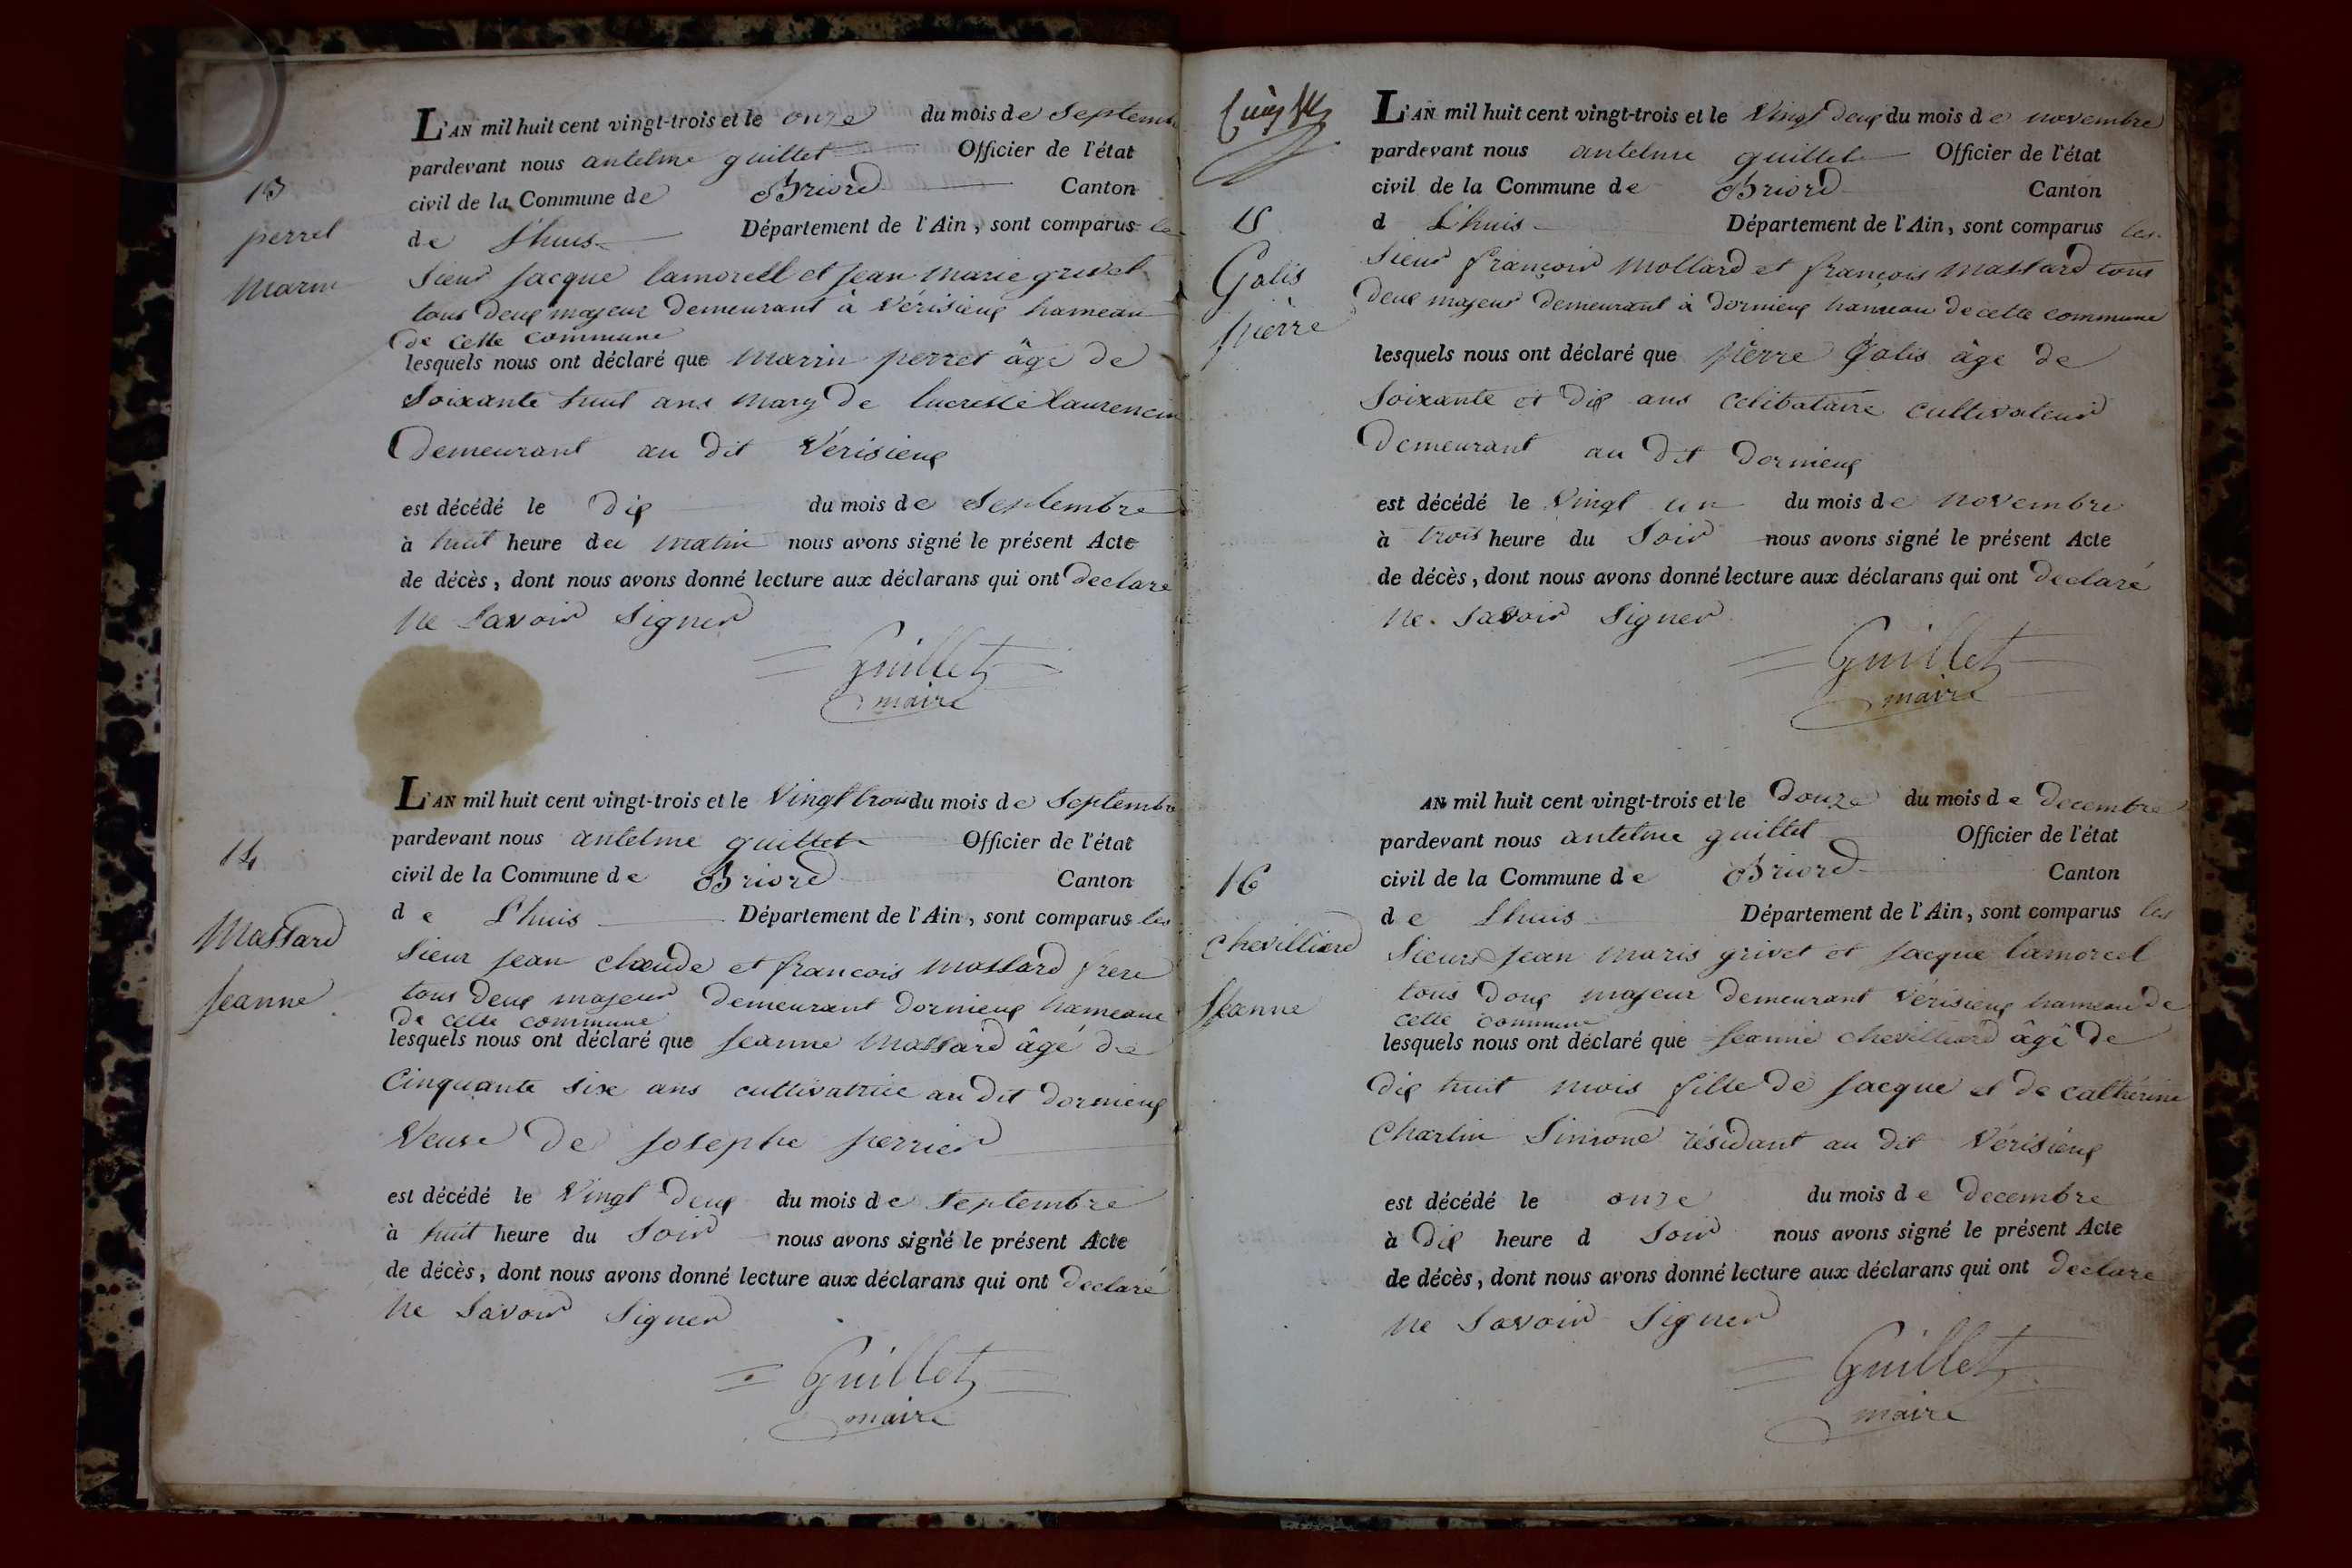 13
perret
marin
L'AN mil huit cent vingt-trois et le onze du mois de Septemb
pardevant nous antelme guillet Officier de l'état
civil de la Commune de Briord Canton
de Lhuis Département de l'Ain, sont comparus les
Sieur Jacque lamorell et Jean marie grivet
tous deux majeur demeurant à Vérisieux hameau
de cette commune
lesquels nous ont déclaré que marin perret âgé de
Soixante huit ans mary de lucresse laurencin
demeurant au dit Vérisieux
est décédé le dix du mois de Septembre
à huit heure du matin nous avons signé le présent Acte
de décès, dont nous avons donné lecture aux déclarans qui ont declaré
ne Savoir Signer
Guillet
maire
14
Massard
Jeanne
L'AN mil huit cent vingt-trois et le Vingt trois du mois de Septembre
pardevant nous antelme guillet Officier de l'état
civil de la Commune de Briord Canton
de Lhuis Département de l'Ain, sont comparus les
Sieur Jean claude et francois massard frere
tous deux majeur demeurant dornieux hameaue
de cette commune
lesquels nous ont déclaré que Jeanne massard âgé de
Cinquante six ans cultivatrice au dit dornieux
Veuve de Josephe perrier
est décédé le Vingt deux du mois de Septembre
à huit heure du Soir nous avons signé le présent Acte
de décès, dont nous avons donné lecture aux déclarans qui ont declaré
ne Savoir Signer
Guillet
maire
15
Galis
pierre
L'AN mil huit cent vingt-trois et le Vingt deux du mois de novembre
pardevant nous antelme guillet Officier de l'état
civil de la Commune de Briord Canton
d Lhuis Département de l'Ain, sont comparus les
Sieur françois mollard et françois massard tous
deux majeur demeurant à dornieux hameau de cette commune
lesquels nous ont déclaré que pierre Galis âge de
Soixante et dix ans celibataire cultivateur
demeurant au dit dornieux
est décédé le Vingt un du mois de novembre
à trois heure du Soir nous avons signé le présent Acte
de décès, dont nous avons donné lecture aux déclarans qui ont declaré
ne Savoir Signer
Guillet
maire
16
chevilliard
Jeanne
AN mil huit cent vingt-trois et le douze du mois de decembre
pardevant nous antelme guillet Officier de l'état
civil de la Commune de Briord Canton
de Lhuis Département de l'Ain, sont comparus les
Sieurs Jean maris grivet et Jacque lamorcel
tous doux majeur demeurant Vérisieux hameau de
cette commune
lesquels nous ont déclaré que Jeanne chevilliard âgé de
dix huit mois fille de Jacque et de catherine
Charlin Simone résidant au dit Vérisieux
est décédé le onze du mois de decembre
à dix heure d Soir nous avons signé le présent Acte
de décès, dont nous avons donné lecture aux déclarans qui ont declaré
ne Savoir Signer
Guillet
maire